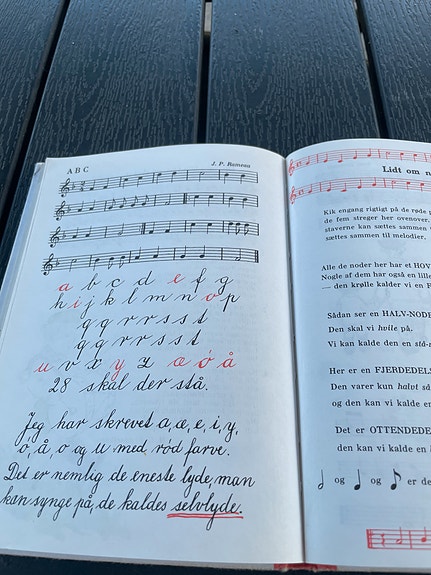 A B C
J. P. Rameau
a b c d e f g
h i j k l m n o p
q q r r s s t
q q r r s s t
u v x y z æ ø å
28 skal der stå.
Jeg har skrevet a, æ, e, i, y,
ø, å, o og u med rød farve.
Det er nemlig de eneste lyde, man
kan synge på, de kaldes selvlyde.
Lidt om n
Kik engang rigtigt på de røde
de fem streger her ovenover.
staverne kan sættes sammen
sættes sammen til melodier.
Alle de noder her har et HOV
Nogle af dem har også en lille
— den krølle kalder vi en F
Sådan ser en HALV-NODE
Den skal vi hvile på.
Vi kan kalde den en stå-
Her er en FJERDEDEL
Den varer kun halvt så
og den kan vi kalde en
Det er OTTENDEDE
den kan vi kalde en
og og er de